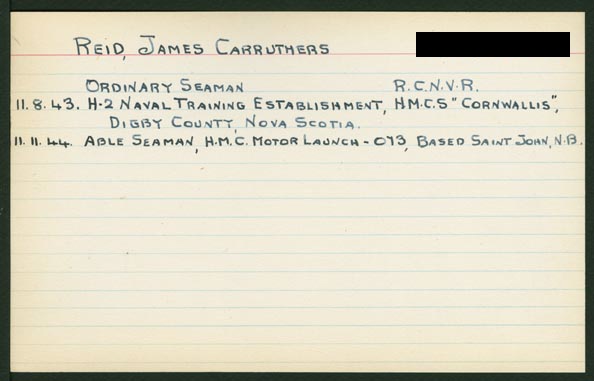 REID, JAMES CARRUTHERS
ORDINARY SEAMAN R.C.N.V.R.
11.8.43. H-2 NAVAL TRAINING ESTABLISHMENT, H.M.C.S "CORNWALLIS",
DIGBY COUNTY, NOVA SCOTIA.
11.11.44. ABLE SEAMAN, H.M.C. MOTOR LAUNCH - 073, BASED SAINT JOHN, N.B.